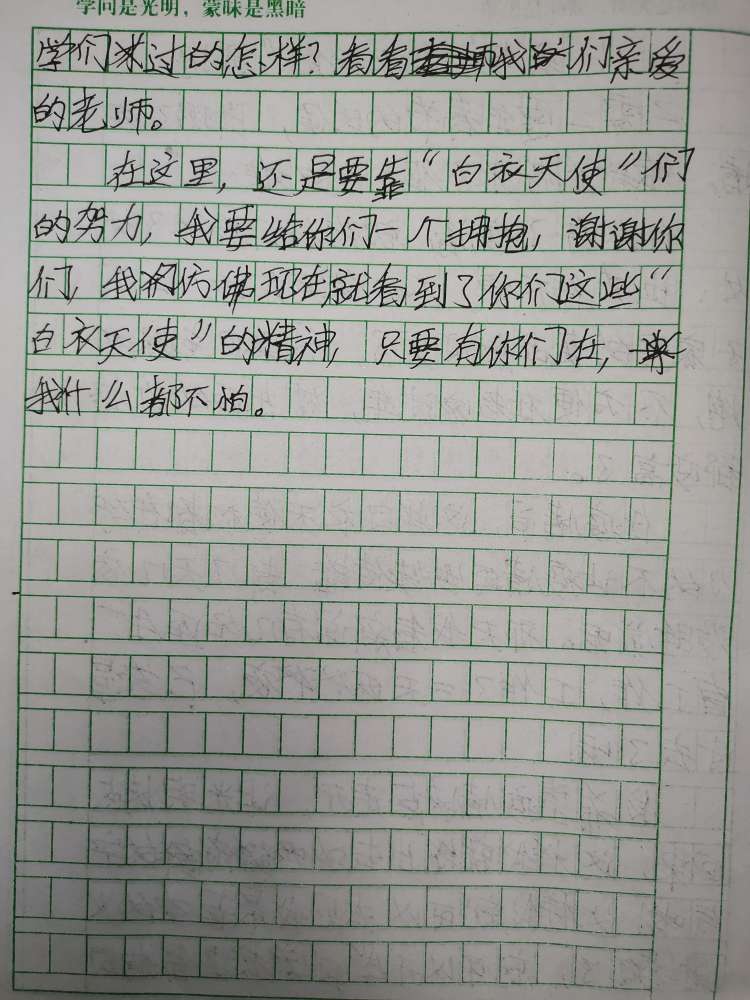 学问是光明，蒙昧是黑暗
学们来过的怎样？看看我们亲爱
的老师。
在这里，还是要靠“白衣天使”们
的努力，我要给你们一个拥抱，谢谢你
们，我仿佛现在就看到了你们这些“
白衣天使”的精神，只要有你们在，
我什么都不怕。